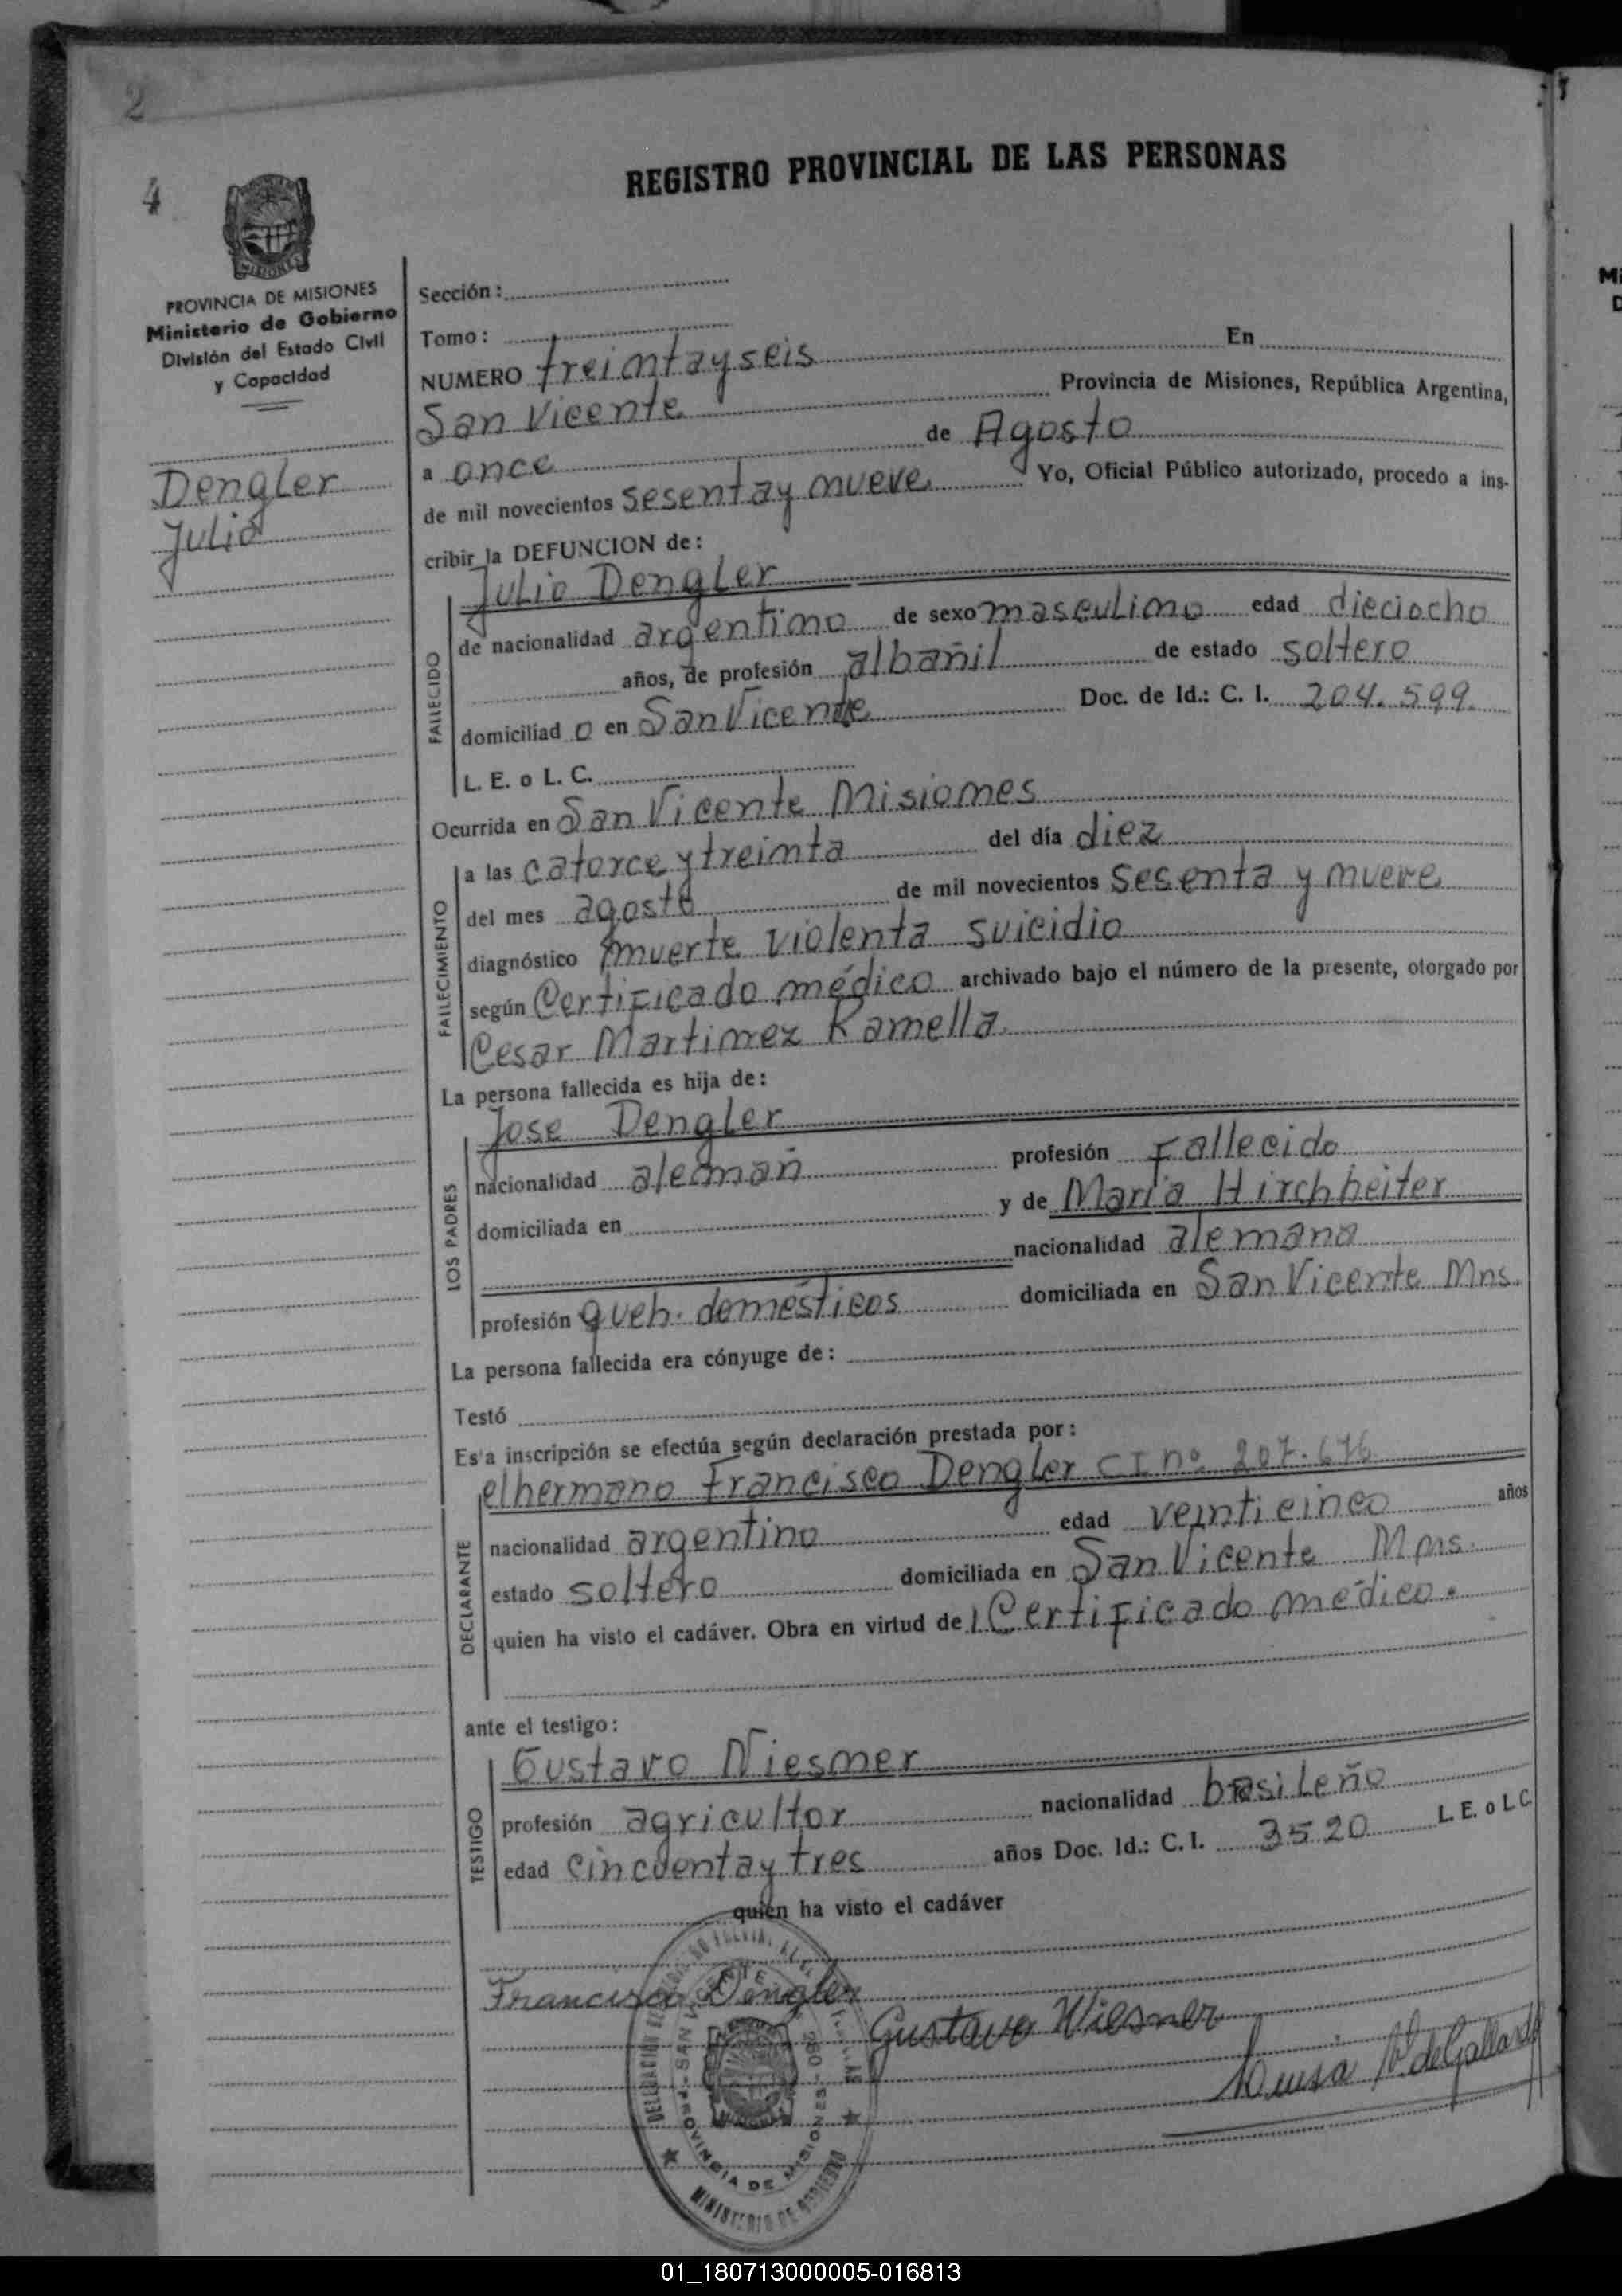 2
4
REGISTRO PROVINCIAL DE LAS PERSONAS
MISIONES
PROVINCIA DE MISIONES
Ministerio de Gobierno
División del Estado Civil
y Capacidad
Dengler
Julio
Sección:
Tomo:
NUMERO treinta y seis En
San Vicente Provincia de Misiones, República Argentina,
a once de Agosto
de mil novecientos sesenta y nueve Yo, Oficial Público autorizado, procedo a ins-
cribir la DEFUNCION de:
FALLECIDO
Julio Dengler
de nacionalidad argentino de sexo masculino edad dieciocho
años, de profesión albañil de estado soltero
domiciliad o en San Vicente Doc. de Id.: C. I. 204.599.
L. E. o L. C.
Ocurrida en San Vicente Misiones
FALLECIMIENTO
a las catorce y treinta del día diez
del mes agosto de mil novecientos sesenta y nueve
diagnóstico muerte violenta suicidio
según Certificado médico archivado bajo el número de la presente, otorgado por
Cesar Martinez Ramella
La persona fallecida es hija de:
LOS PADRES
Jose Dengler
nacionalidad aleman profesión Fallecido
domiciliada en y de María Hirchheiter
nacionalidad alemana
profesión queh. domésticos domiciliada en San Vicente Mns.
La persona fallecida era cónyuge de:
Testó
Esta inscripción se efectúa según declaración prestada por:
DECLARANTE
el hermano Francisco Dengler CI nº 207.676
nacionalidad argentino edad veinticinco años
estado soltero domiciliada en San Vicente Mns.
quien ha visto el cadáver. Obra en virtud de Certificado médico.
ante el testigo:
TESTIGO
Gustavo Niesner
profesión agricultor nacionalidad brasileño
edad cincuenta y tres años Doc. Id.: C. I. 3520 L. E. o L C.
quien ha visto el cadáver
Francisco Dengler
Gustavo Wiesner
de Gallardo
SAN VICENTE
PROVINCIA DE MISIONES
MINISTERIO DE GOBIERNO
Mi
D
01_180713000005-016813